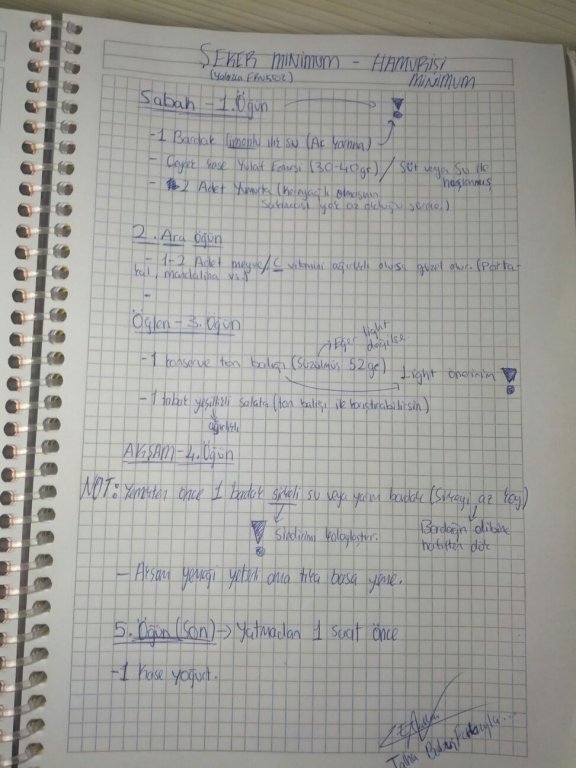 ŞEKER MİNİMUM - HAMURİŞİ
MİNİMUM
Sabah - 1. Öğün
- 1 Bardak limonlu ılık su (Aç karnına)
- Çeyrek kase Yulaf Ezmesi (30-40gr) / Süt veya Su ile
haşlanmış
- 2 Adet Yumurta (
Sakıncası yok az olduğu sürece.)
2. Ara öğün
- 1-2 Adet meyve / C vitamini ağırlıklı olursa güzel olur. (Porta-
kal, mandalina vs)
-
Öğlen - 3. Öğün
Eğer light
değilse
- 1 konserve ton balığı (Süzülmüş 52gr) Light önerinim
- 1 tabak yeşillikli salata (ton balığı ile karıştırabilirsin)
ağırlıklı
AKŞAM - 4. Öğün
NOT: Yemekten önce 1 bardak sirkeli su veya yarım bardak (Sirkeyi az koy)
Sindirimi kolaylaştırır.
Bardağın dibine
hafiften dök
- Akşam yemeği yeterli ama tıka basa yeme.
5. Öğün (Son) → Yatmadan 1 saat önce
- 1 kase yoğurt.
Talha